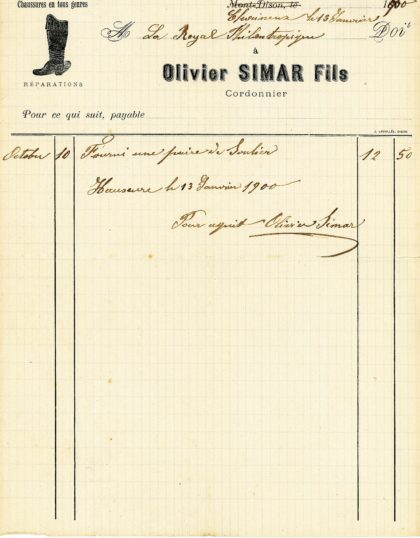 Chaussures en tous genres
Mont-Dison, le 1900
le 13 Janvier
M La Royal Philantropique Doit
à
Olivier SIMAR Fils
RÉPARATIONS
Cordonnier
Pour ce qui suit, payable
October 10 Fourni une paire de Soulier 12 50
le 13 Janvier 1900
Pour aquit Olivier Simar